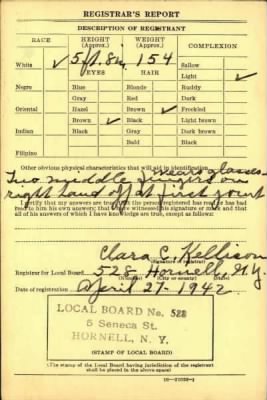 REGISTRAR'S REPORT
DESCRIPTION OF REGISTRANT
RACE HEIGHT (Approx.) WEIGHT (Approx.) COMPLEXION
White ✓ 5 ft. 8 in. 154 Sallow
EYES HAIR Light ✓
Negro Blue Blonde Ruddy
Gray Red Dark
Oriental Hazel Brown ✓ Freckled
Brown ✓ Black Light brown
Indian Black Gray Dark brown
Bald Black
Filipino
Other obvious physical characteristics that will aid in identification wears glasses-
Two middle fingers on
right hand off at first joint
I certify that my answers are true; that the person registered has read or has had
read to him his own answers; that I have witnessed his signature or mark and that
all of his answers of which I have knowledge are true, except as follows:
Clara C. Kellison
(Signature of registrar)
Registrar for Local Board 528 Hornell, N.Y.
Date of registration April 27-1942
LOCAL BOARD No. 528
5 Seneca St.
HORNELL, N. Y.
(STAMP OF LOCAL BOARD)
(The stamp of the Local Board having jurisdiction of the registrant
shall be placed in the above space.)